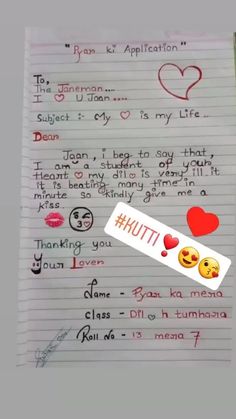 "Pyar ki Application"
To,
The Janeman....
I ♡ U Jaan....
Subject :- My ♡ is my Life..
Dear
Jaan, i beg to say that,
I am a student of your
Heart ♡ my dil ♡ is very ill. it
it is beating many time in
minute so kindly give me a
kiss.
#KUTTI❣️😍😘
Thanking you
Your Lover
Name - Pyar ka mera
class - Dil ♡ h tumhara
Roll No - 13 mera 7